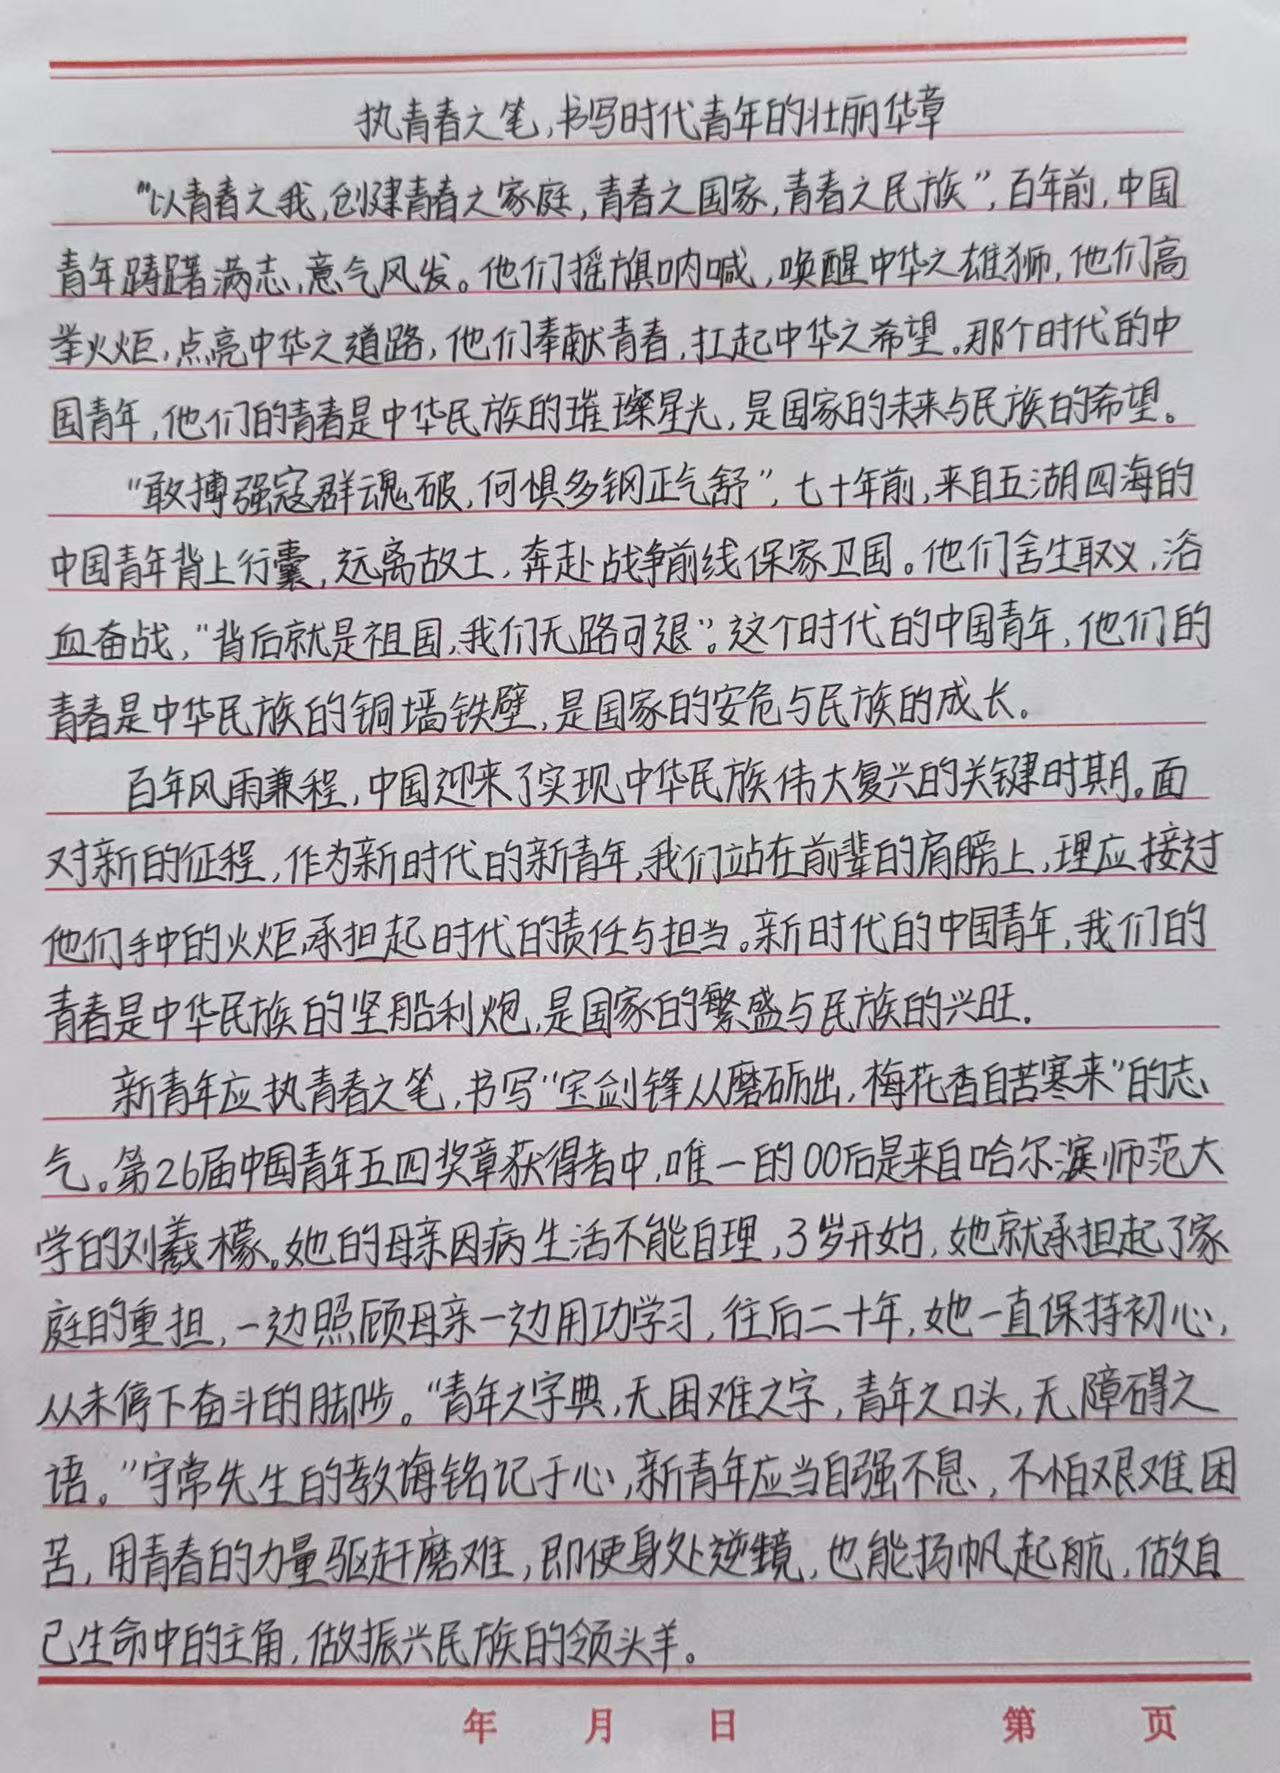 执青春之笔,书写时代青年的壮丽华章
“以青春之我,创建青春之家庭,青春之国家,青春之民族”,百年前,中国
青年踌躇满志,意气风发。他们摇旗呐喊,唤醒中华之雄狮,他们高
举火炬,点亮中华之道路,他们奉献青春,扛起中华之希望。那个时代的中
国青年,他们的青春是中华民族的璀璨星光,是国家的未来与民族的希望。
“敢搏强寇群魂破,何惧多钢正气舒”,七十年前,来自五湖四海的
中国青年背上行囊,远离故土,奔赴战争前线保家卫国。他们舍生取义,浴
血奋战,“背后就是祖国,我们无路可退”。这个时代的中国青年,他们的
青春是中华民族的铜墙铁壁,是国家的安危与民族的成长。
百年风雨兼程,中国迎来了实现中华民族伟大复兴的关键时期。面
对新的征程,作为新时代的新青年,我们站在前辈的肩膀上,理应接过
他们手中的火炬,承担起时代的责任与担当。新时代的中国青年,我们的
青春是中华民族的坚船利炮,是国家的繁盛与民族的兴旺。
新青年应执青春之笔,书写“宝剑锋从磨砺出,梅花香自苦寒来”的志
气。第26届中国青年五四奖章获得者中,唯一的00后是来自哈尔滨师范大
学的刘羲檬。她的母亲因病生活不能自理,3岁开始,她就承担起了家
庭的重担,一边照顾母亲一边用功学习,往后二十年,她一直保持初心,
从未停下奋斗的脚步。“青年之字典,无困难之字,青年之口头,无障碍之
语。”守常先生的教诲铭记于心,新青年应当自强不息,不怕艰难困
苦,用青春的力量驱赶磨难,即使身处逆境,也能扬帆起航,做自
己生命中的主角,做振兴民族的领头羊。
年 月 日 第 页